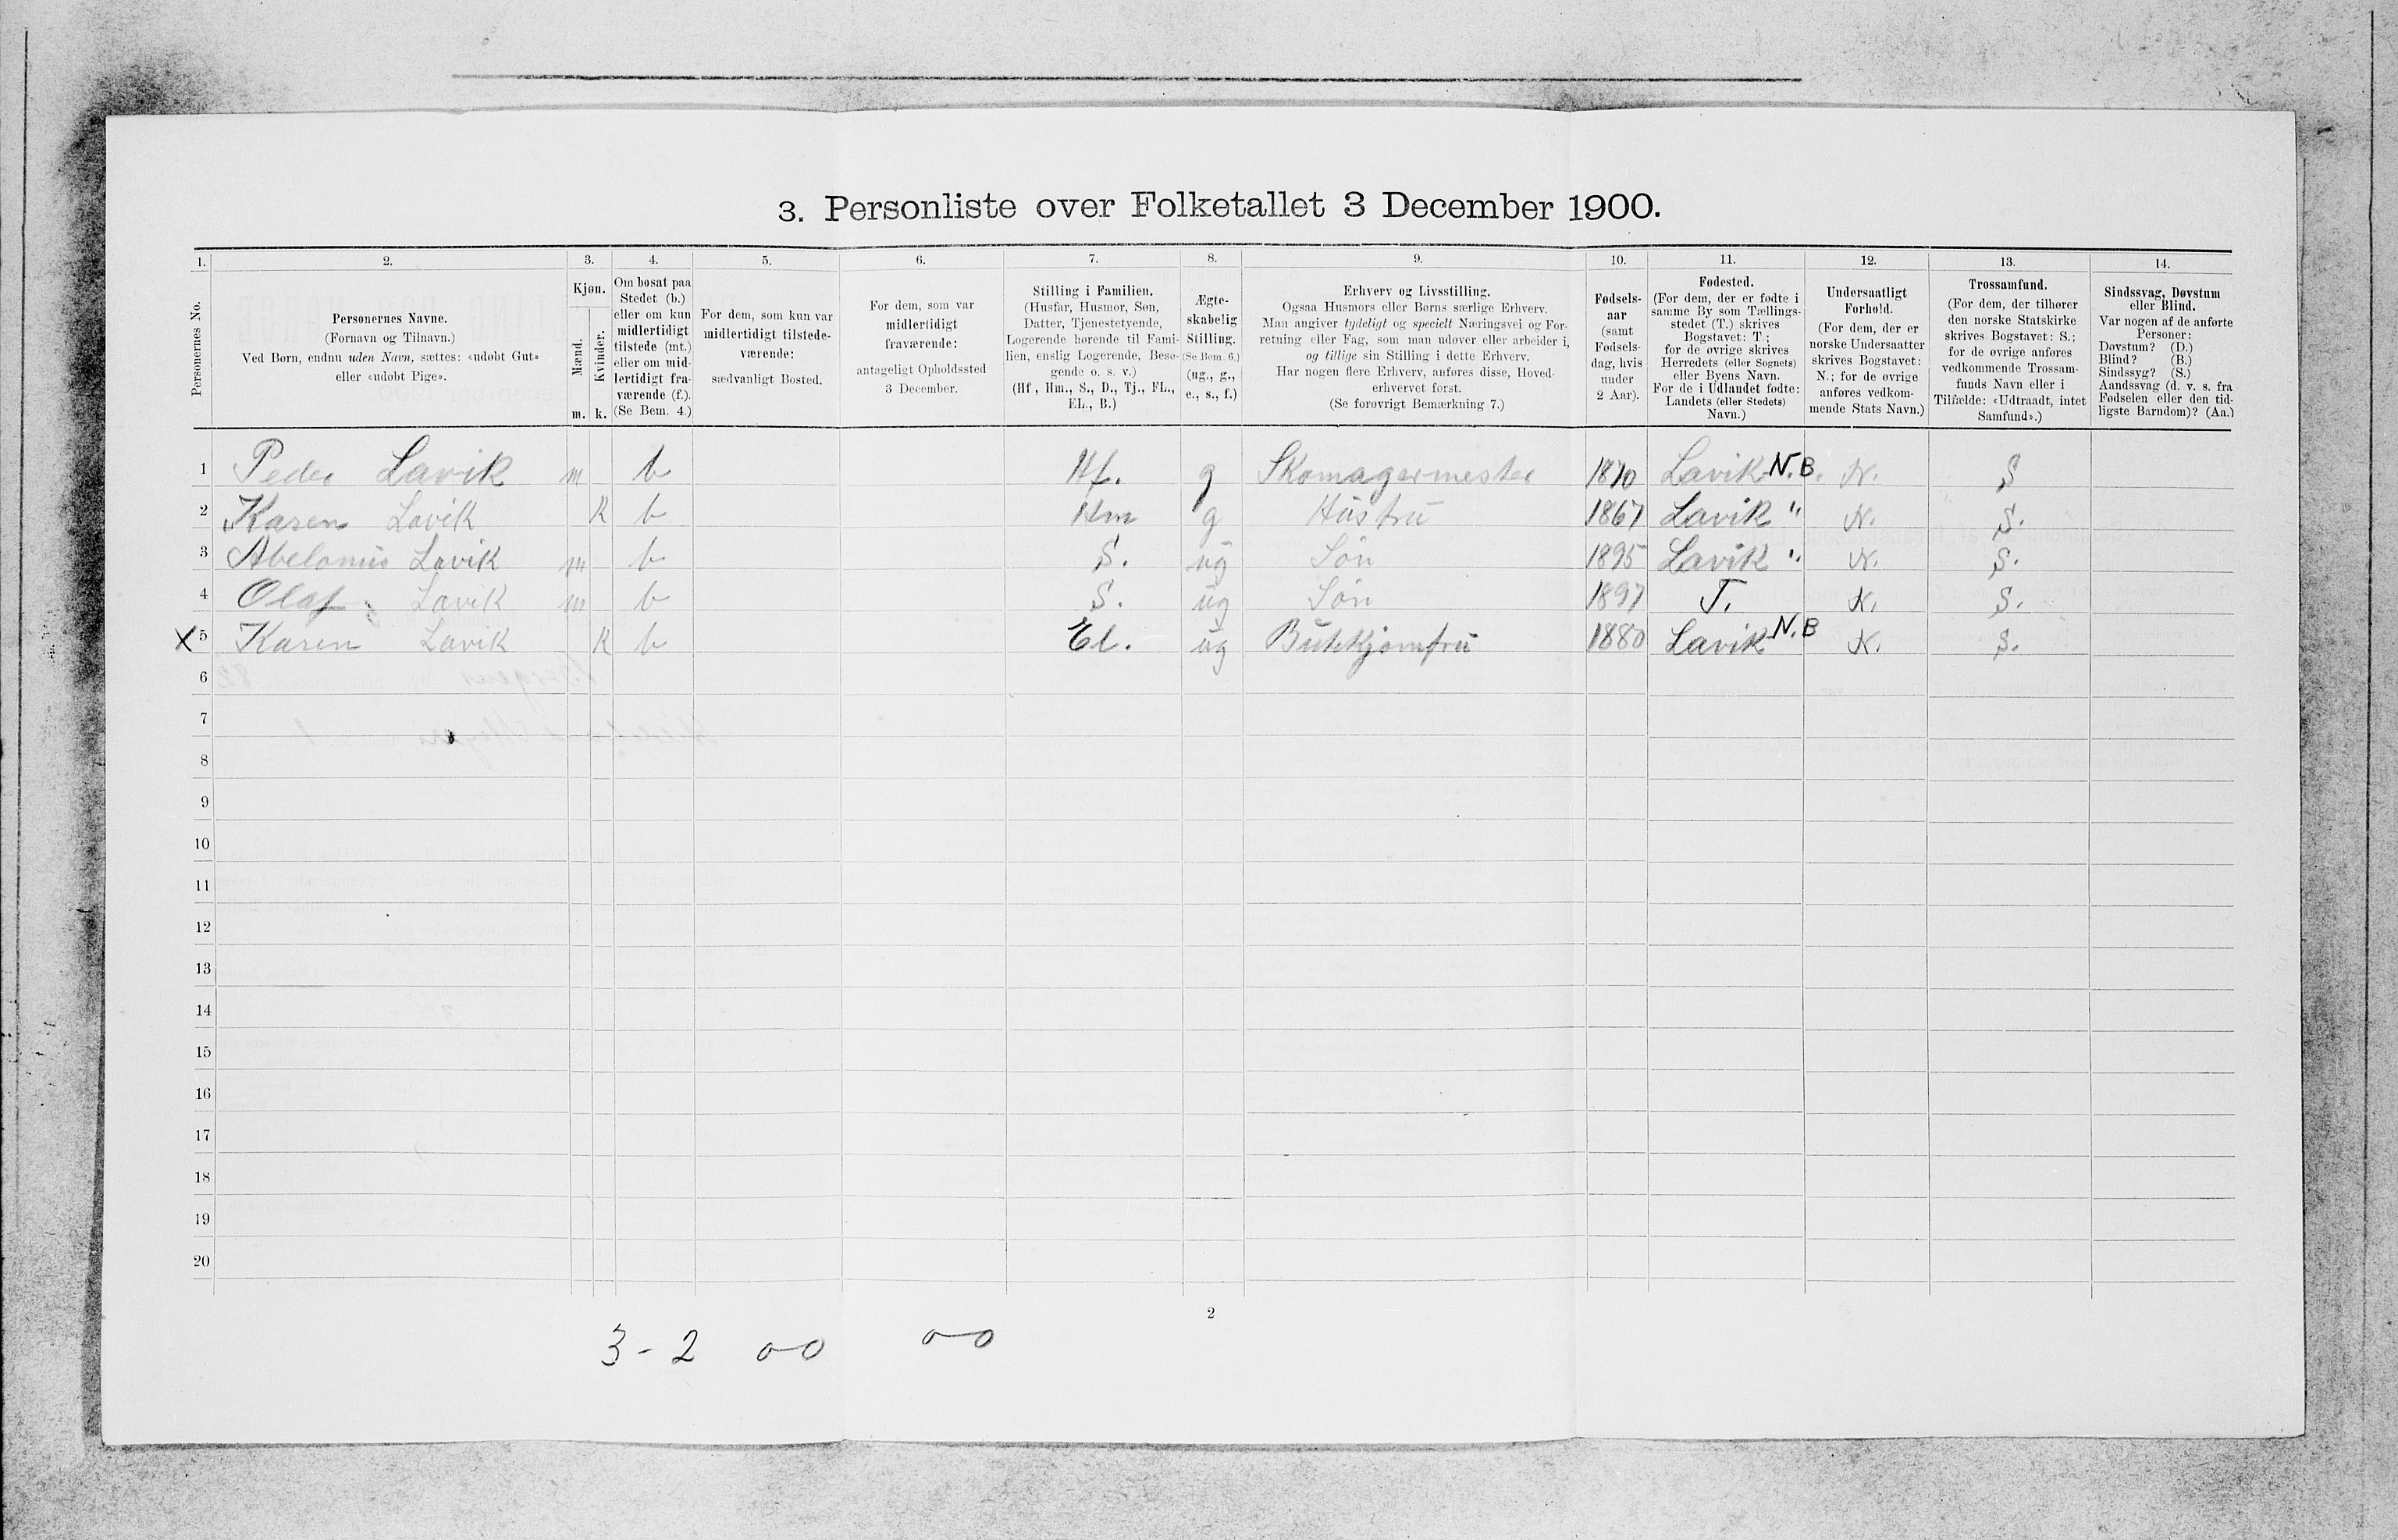 3. Personliste over Folketallet 3 December 1900.
1. 2. 3. 4. 5. 6. 7. 8. 9. 10. 11. 12. 13. 14.
Personernes No.
Personernes Navne.
(Fornavn og Tilnavn.)
Ved Børn, endnu uden Navn, sættes: «udøbt Gut»
eller «udøbt Pige».
Kjøn.
Mænd.
Kvinder.
m. k.
Om bosat paa
Stedet (b.)
eller om kun
midlertidigt
tilstede (mt.)
eller om mid-
lertidigt fra-
værende (f.).
(Se Bem. 4.)
For dem, som kun var
midlertidigt tilstede-
værende:
sædvanligt Bosted.
For dem, som var
midlertidigt
fraværende:
antageligt Opholdssted
3 December.
Stilling i Familien.
(Husfar, Husmor, Søn,
Datter, Tjenestetyende,
Logerende hørende til Fami-
lien, enslig Logerende, Besø-
gende o. s. v.)
(Hf., Hm., S., D., Tj., FL.,
EL., B.)
Ægte-
skabelig
Stilling.
(Se Bem. 6.)
(ug., g.,
e., s., f.)
Erhverv og Livsstilling.
Ogsaa Husmors eller Børns særlige Erhverv.
Man angiver tydeligt og specielt Næringsvei og For-
retning eller Fag, som man udøver eller arbeider i,
og tillige sin Stilling i dette Erhverv.
Har nogen flere Erhverv, anføres disse, Hoved-
erhvervet først.
(Se forøvrigt Bemærkning 7.)
Fødsels-
aar
(samt
Fødsels-
dag, hvis
under
2 Aar).
Fødested.
(For dem, der er fødte i
samme By som Tællings-
stedet (T.) skrives
Bogstavet: T.;
for de øvrige skrives
Herredets (eller Sognets)
eller Byens Navn.
For de i Udlandet fødte:
Landets (eller Stedets)
Navn.)
Undersaatligt
Forhold.
(For dem, der er
norske Undersaatter
skrives Bogstavet:
N.; for de øvrige
anføres vedkom-
mende Stats Navn.)
Trossamfund.
(For dem, der tilhører
den norske Statskirke
skrives Bogstavet: S.;
for de øvrige anføres
vedkommende Trossam-
funds Navn eller i
Tilfælde: «Udtraadt, intet
Samfund».)
Sindssvag, Døvstum
eller Blind.
Var nogen af de anførte
Personer:
Døvstum? (D.)
Blind? (B.)
Sindssyg? (S.)
Aandssvag (d. v. s. fra
Fødselen eller den tid-
ligste Barndom)? (Aa.)
1 Peder Lavik m b Hf. g Skomagermester 1870 Lavik N.B. N. S
2 Karen Lavik K b Hm g Hustru 1867 Lavik " N. S.
3 Abelonius Lavik m b S. ug Søn 1895 Lavik " N. S.
4 Olaf Lavik m b S. ug Søn 1897 T. N. S.
X 5 Karen Lavik K b El. ug Butikjomfru 1880 Lavik N.B N. S.
6
7
8
9
10
11
12
13
14
15
16
17
18
19
20
2
3 - 2 0-0 0-0